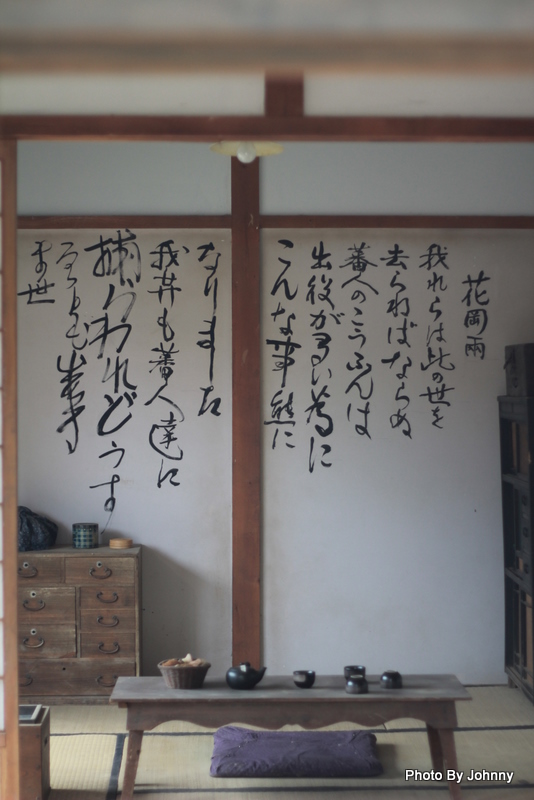 花岡兩
我れらは此の世を
去らねばならぬ
蕃人のこうふんは
出役が多い為に
こんな事件に
なりました
我等も蕃人達に
捕らわれどうす
ることも出来
ません
Photo By Johnny